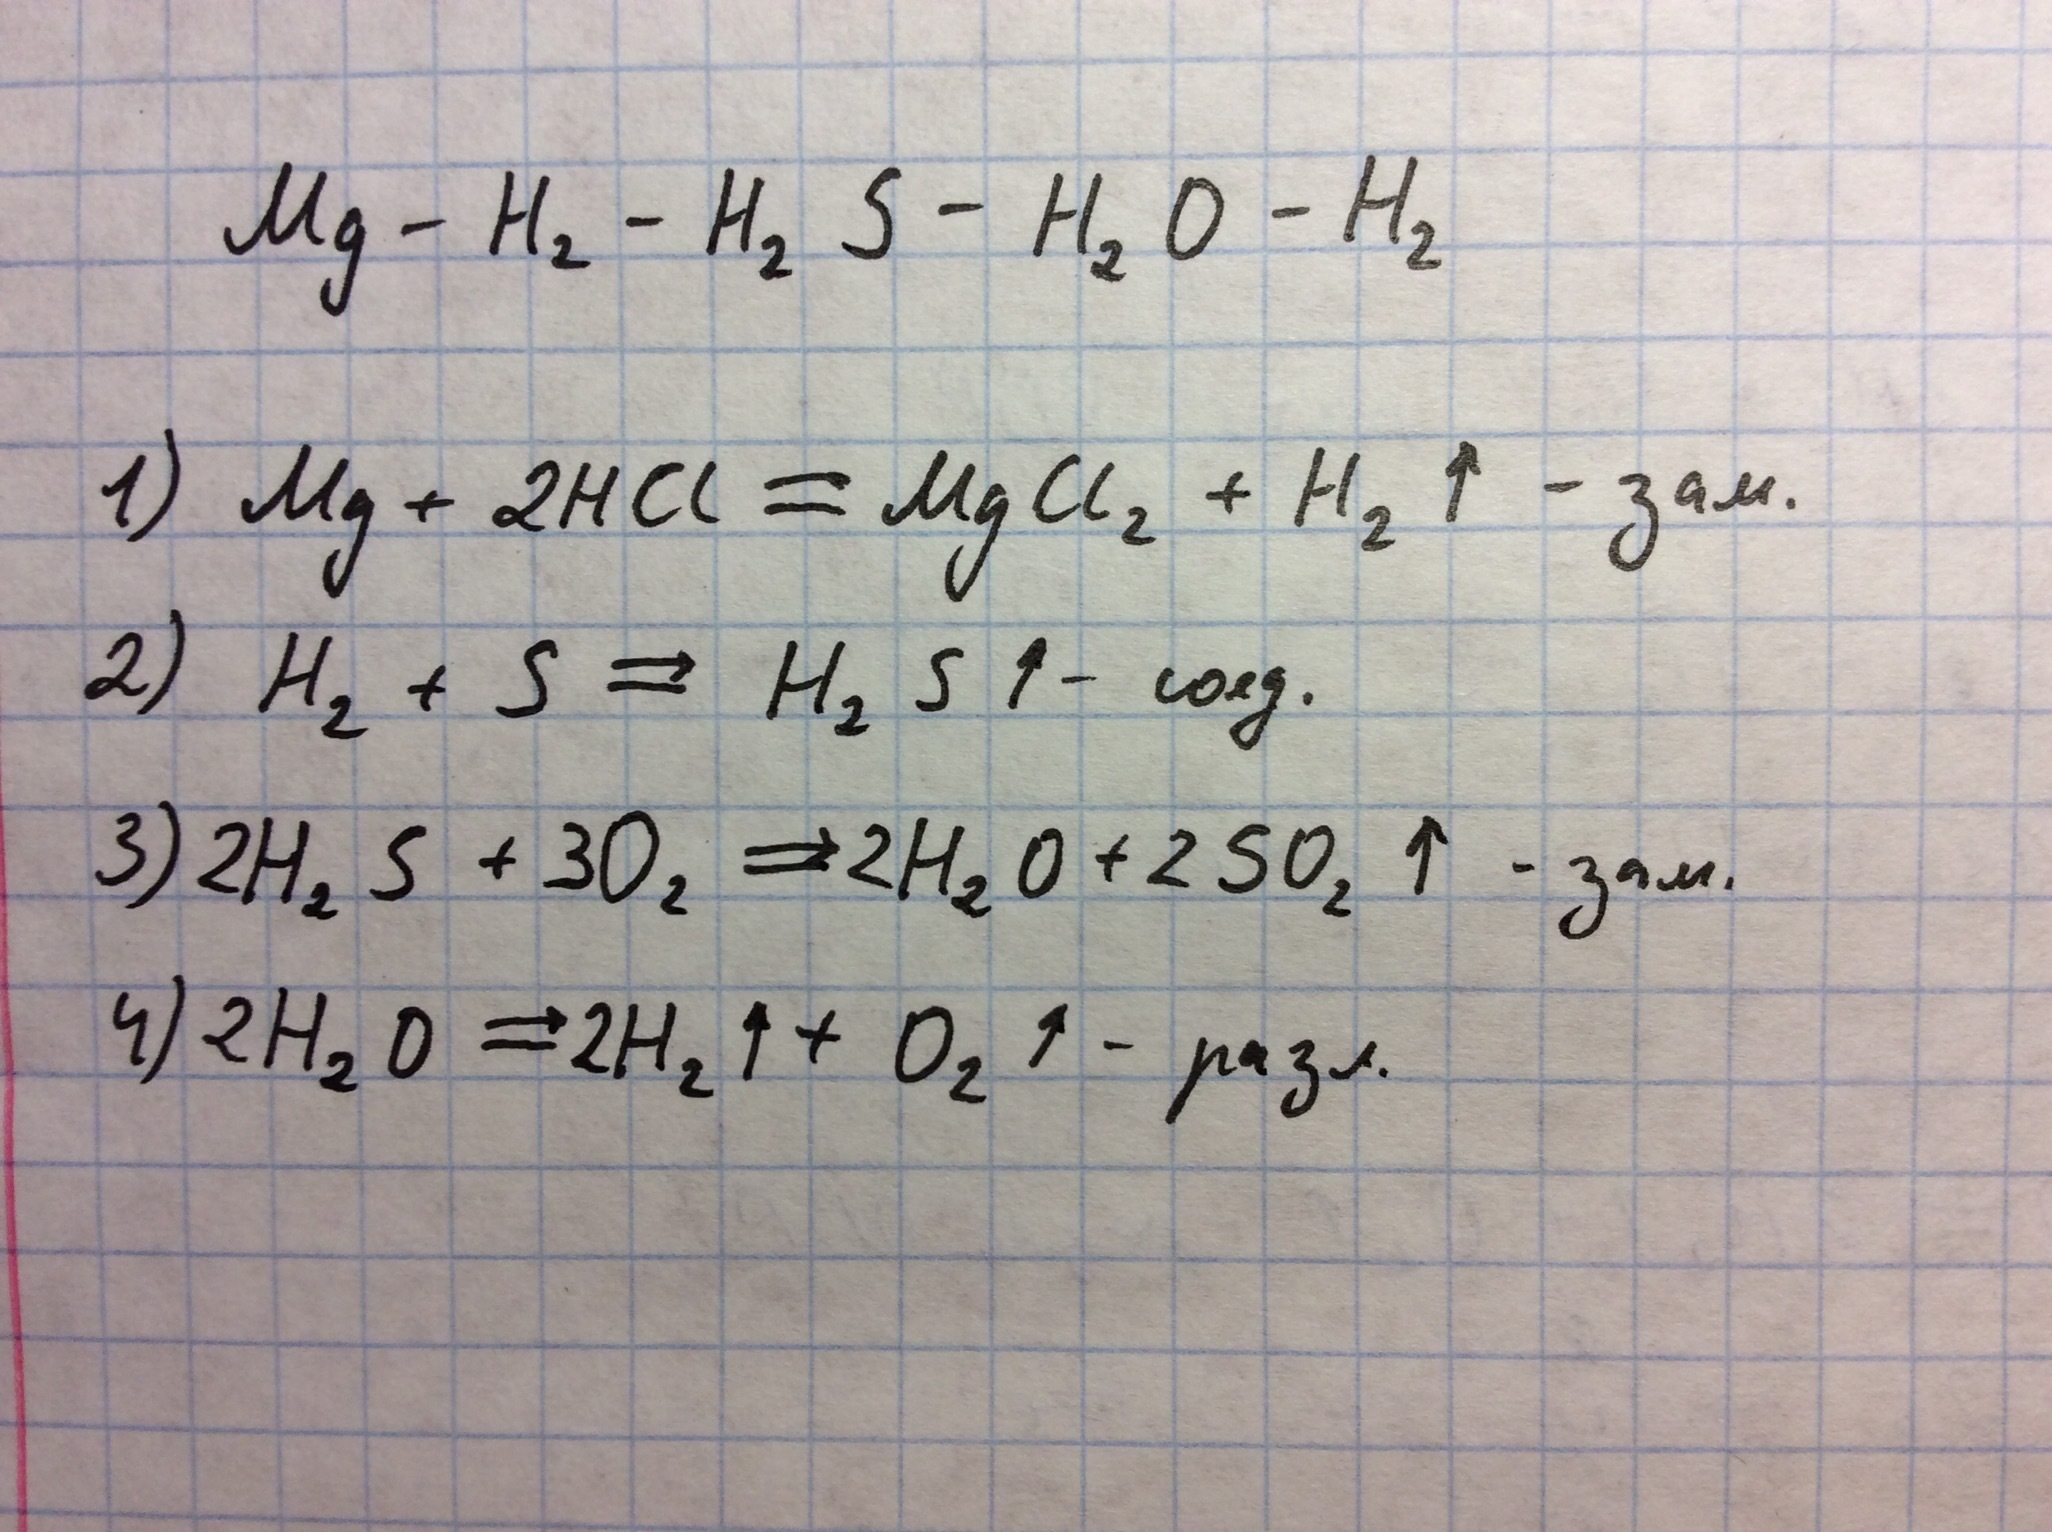 Mg - H₂ - H₂S - H₂O - H₂
1) Mg + 2HCl = MgCl₂ + H₂ ↑ - зам.
2) H₂ + S ⇒ H₂S ↑ - соед.
3) 2H₂S + 3O₂ ⇒ 2H₂O + 2SO₂ ↑ - зам.
4) 2H₂O ⇒ 2H₂ ↑ + O₂ ↑ - разл.